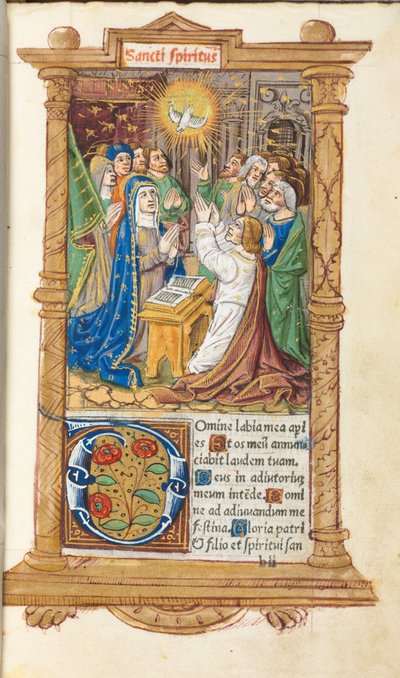 Sancti spiritus
Omine labia mea api
es Et os meũ annun
ciabit laudem tuam.
Deus in adiutoriuȝ
meum intẽde. Domi
ne ad adiuuandum me
festina. Gloria patri
& filio et spiritui san
b ii